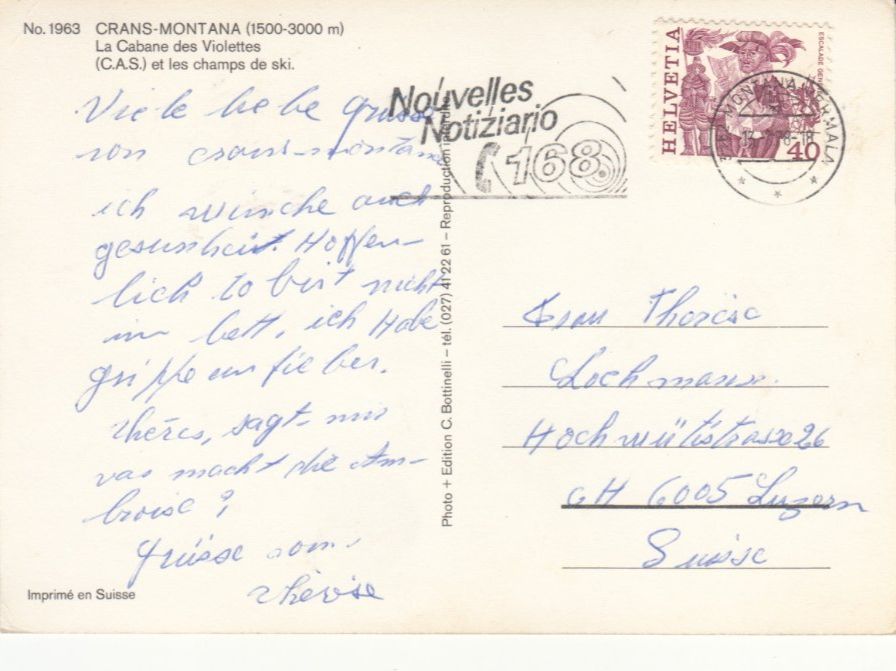 No. 1963 CRANS-MONTANA (1500-3000 m)
La Cabane des Violettes
(C.A.S.) et les champs de ski.
Viele liebe grüsse
von crans-montana
ich wünche auch
gesunheit. Hoffen-
lich to bist nicht
im bett, ich Habe
grippe un fieber.
thères, sagt mir
vas macht die Am-
broise?
Grüsse von
thérèse
Imprimé en Suisse
Photo + Edition C. Bottinelli – tél. (027) 41 22 61 – Reproduction interdite
Nouvelles
Notiziario
168
HELVETIA
ESCALADE
40
MONTANA-VERMALA
Frau Therese
Lochmann.
Hochwütistrasse 26
CH 6005 Luzern
Suisse